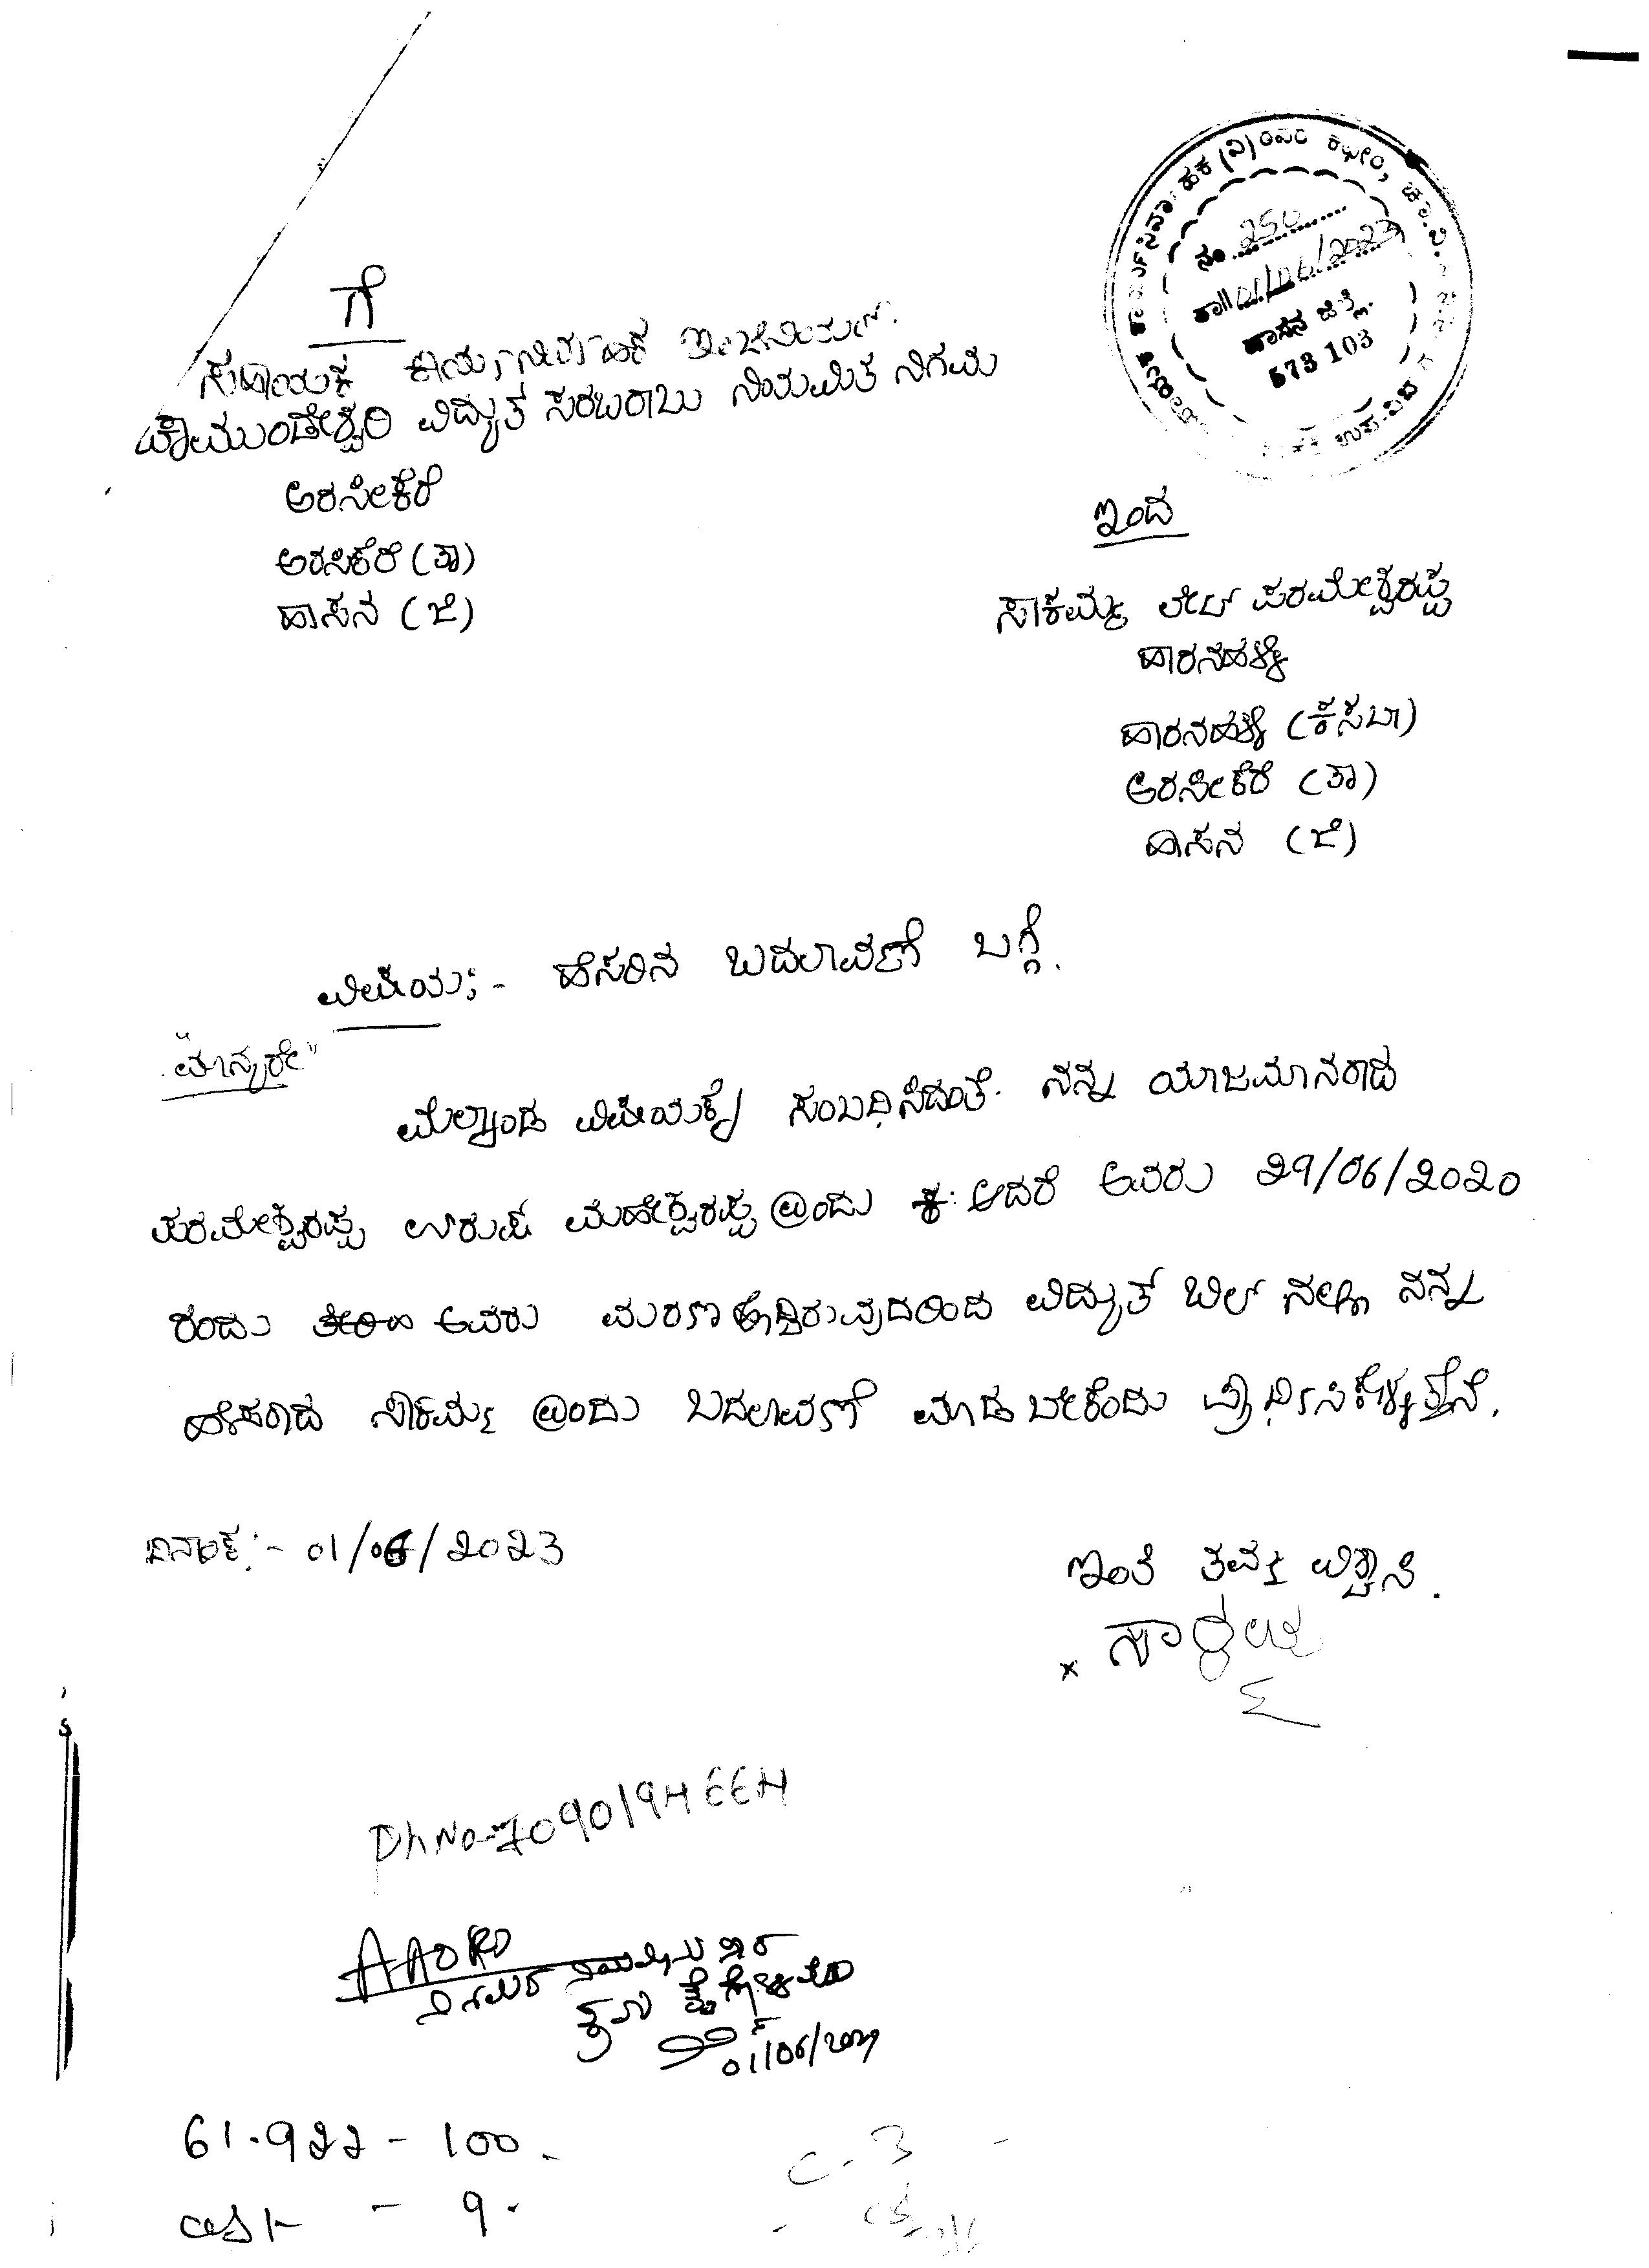 ಗೆ
ಸಹಾಯಕ ಕಾರ್ಯನಿರ್ವಾಹಕ ಇಂಜಿನಿಯರ್.
ಚಾಮುಂಡೇಶ್ವರಿ ವಿದ್ಯುತ ಸರಬರಾಬು ನಿಯಮಿತ ನಿಗಮ
ಅರಸೀಕೆರೆ
ಅರಸಿಕೆರೆ (ತಾ)
ಹಾಸನ (ಜಿ)
ನಂ 250
ತಾ|| 01/06/2023
ಹಾಸನ ಜಿಲ್ಲೆ.
573 103
ಇಂದ
ಸಾಕಮ್ಮ ಲೇಟ್ ಪರಮೇಶ್ವರಪ್ಪ
ಹಾರನಹಳ್ಳಿ
ಹಾರನಹಳ್ಳಿ (ಕಸಬಾ)
ಅರಸೀಕೆರೆ (ತಾ)
ಹಾಸನ (ಜಿ)
ವಿಷಯ:- ಹೆಸರಿನ ಬದಲಾವಣೆ ಬಗ್ಗೆ.
"ಮಾನ್ಯರೇ"
ಮೆಲ್ಕಾಂಡ ವಿಷಯಕ್ಕೆ ಸಂಬಧಿಸಿದಂತೆ. ನನ್ನ ಯಾಜಮಾನರಾದ
ಪರಮೇಶ್ವರಪ್ಪ ಉರುಫ್ ಮಹೇಶ್ವರಪ್ಪ @ಂದು ಆದರೆ ಅವರು 29/06/2020
ರಂದು ಅವರು ಮರಣ ಹೊಂದ್ದಿರುವುದರಿಂದ ವಿದ್ಯುತ್ ಬಿಲ್ ನಲ್ಲಿ ನನ್ನ
ಹೆಸರಾದ ಸಾಕಮ್ಮ @ಂದು ಬದಲಾವಣೆ ಮಾಡಬೇಕೆಂದು ಪ್ರಾರ್ಥಿಸಿಕೊಳ್ಳುತ್ತೆನೆ.
ದಿನಾಂಕ:- 01/06/2023
ಇಂತಿ ತಮ್ಮ ವಿಶ್ವಾಸಿ.
x ಸಾಕಮ್ಮ
Ph No-7090194664
AAORD
ನಿಗಮದ ನಿಯಮಾನುಸಾರ
ಕ್ರಮ ಕೈಗೊಳ್ಳುವುದು
01/06/2023
61.922 - 100.
- 9.
C-3